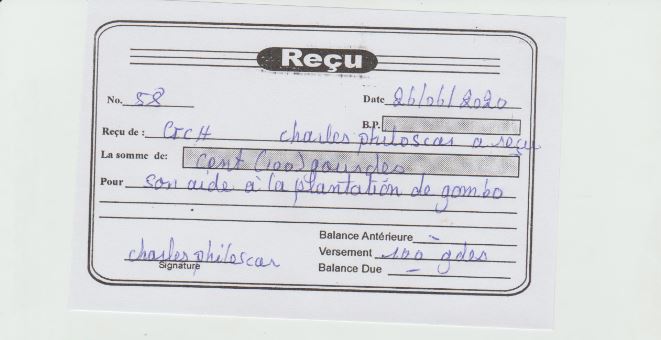 Reçu
No. 58 Date 26/06/2020
B.P.
Reçu de : CTCH charles philoscar a reçu
La somme de: cent (100) gourdes
Pour son aide à la plantation de gombo
Balance Antérieure -
charles philoscar Versement 100 gdes
Signature Balance Due -